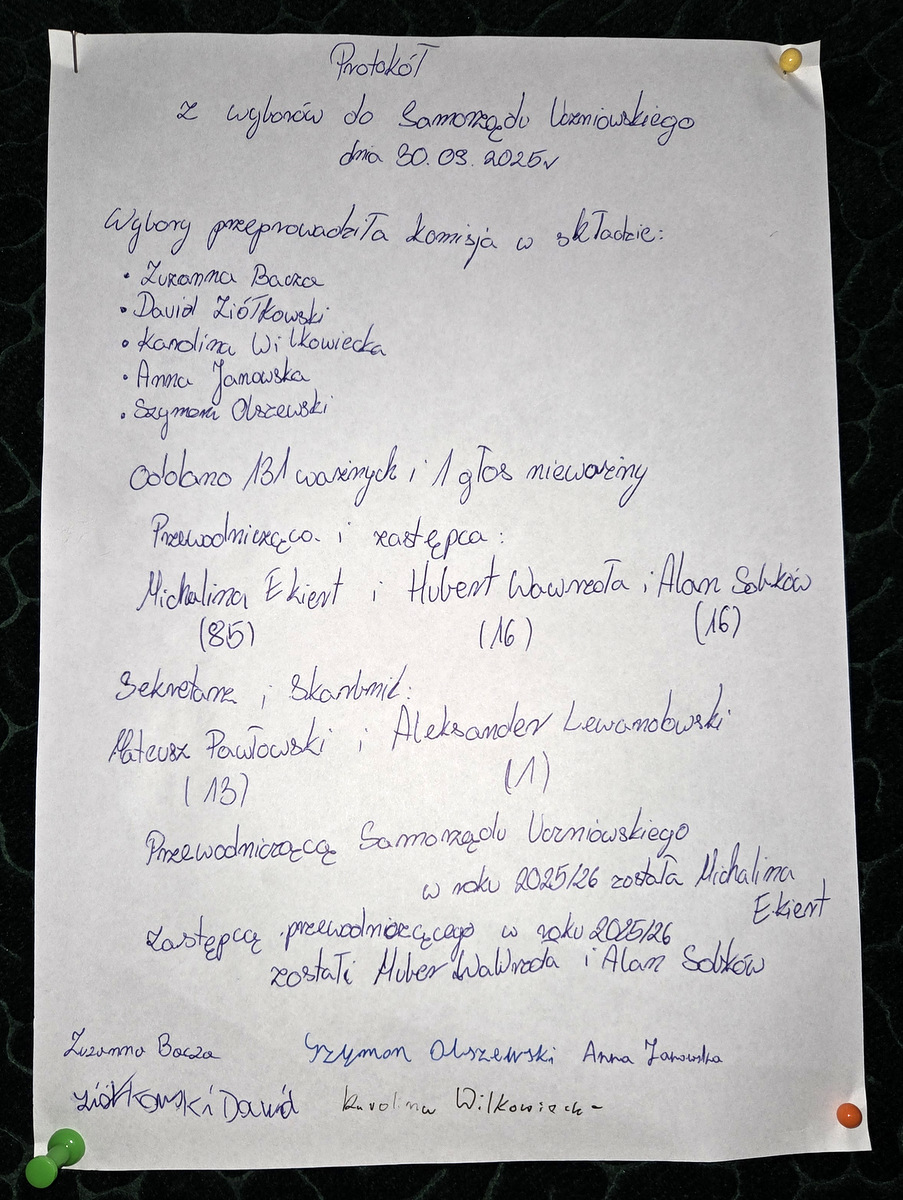 Protokół
z wyborów do Samorządu Uczniowskiego
dnia 30.09.2025r
Wybory przeprowadziła komisja w składzie:
• Zuzanna Bacza
• Dawid Ziółkowski
• Karolina Wilkowiecka
• Anna Janowska
• Szymon Olszewski
Oddano 131 ważnych i 1 głos nieważny
Przewodnicząca i zastępca:
Michalina Ekiert i Hubert Wawrzoła i Alan Sobków
(85) (16) (16)
Sekretarz i Skarbnik:
Mateusz Pawłowski i Aleksander Lewandowski
(13) (1)
Przewodniczącą Samorządu Uczniowskiego
w roku 2025/26 została Michalina
Ekiert
Zastępcą przewodniczącego w roku 2025/26
zostali Huber Wawrzoła i Alan Sobków
Zuzanna Bacza Szymon Olszewski Anna Janowska
Ziółkowski Dawid Karolina Wilkowiecka